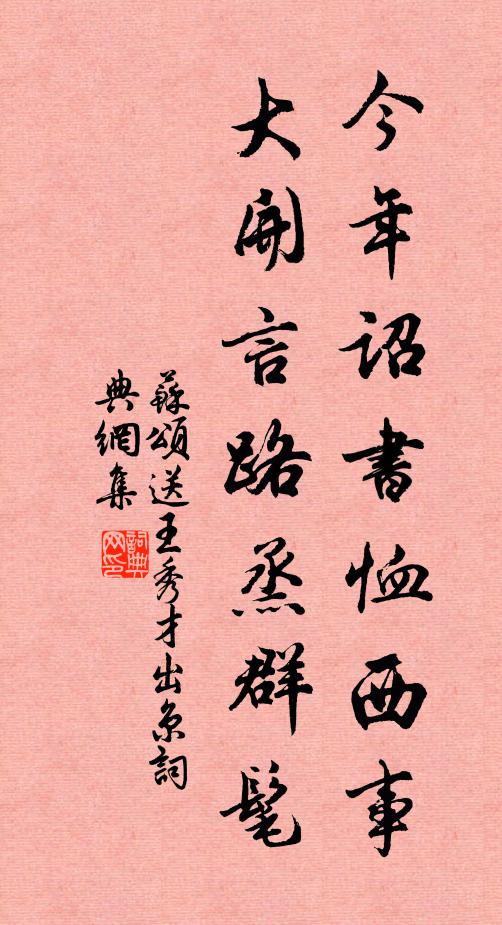 今年詔書恤西事
大開言路烝群髦
蘇頌送王秀才出京詞
典網集
詞典網印